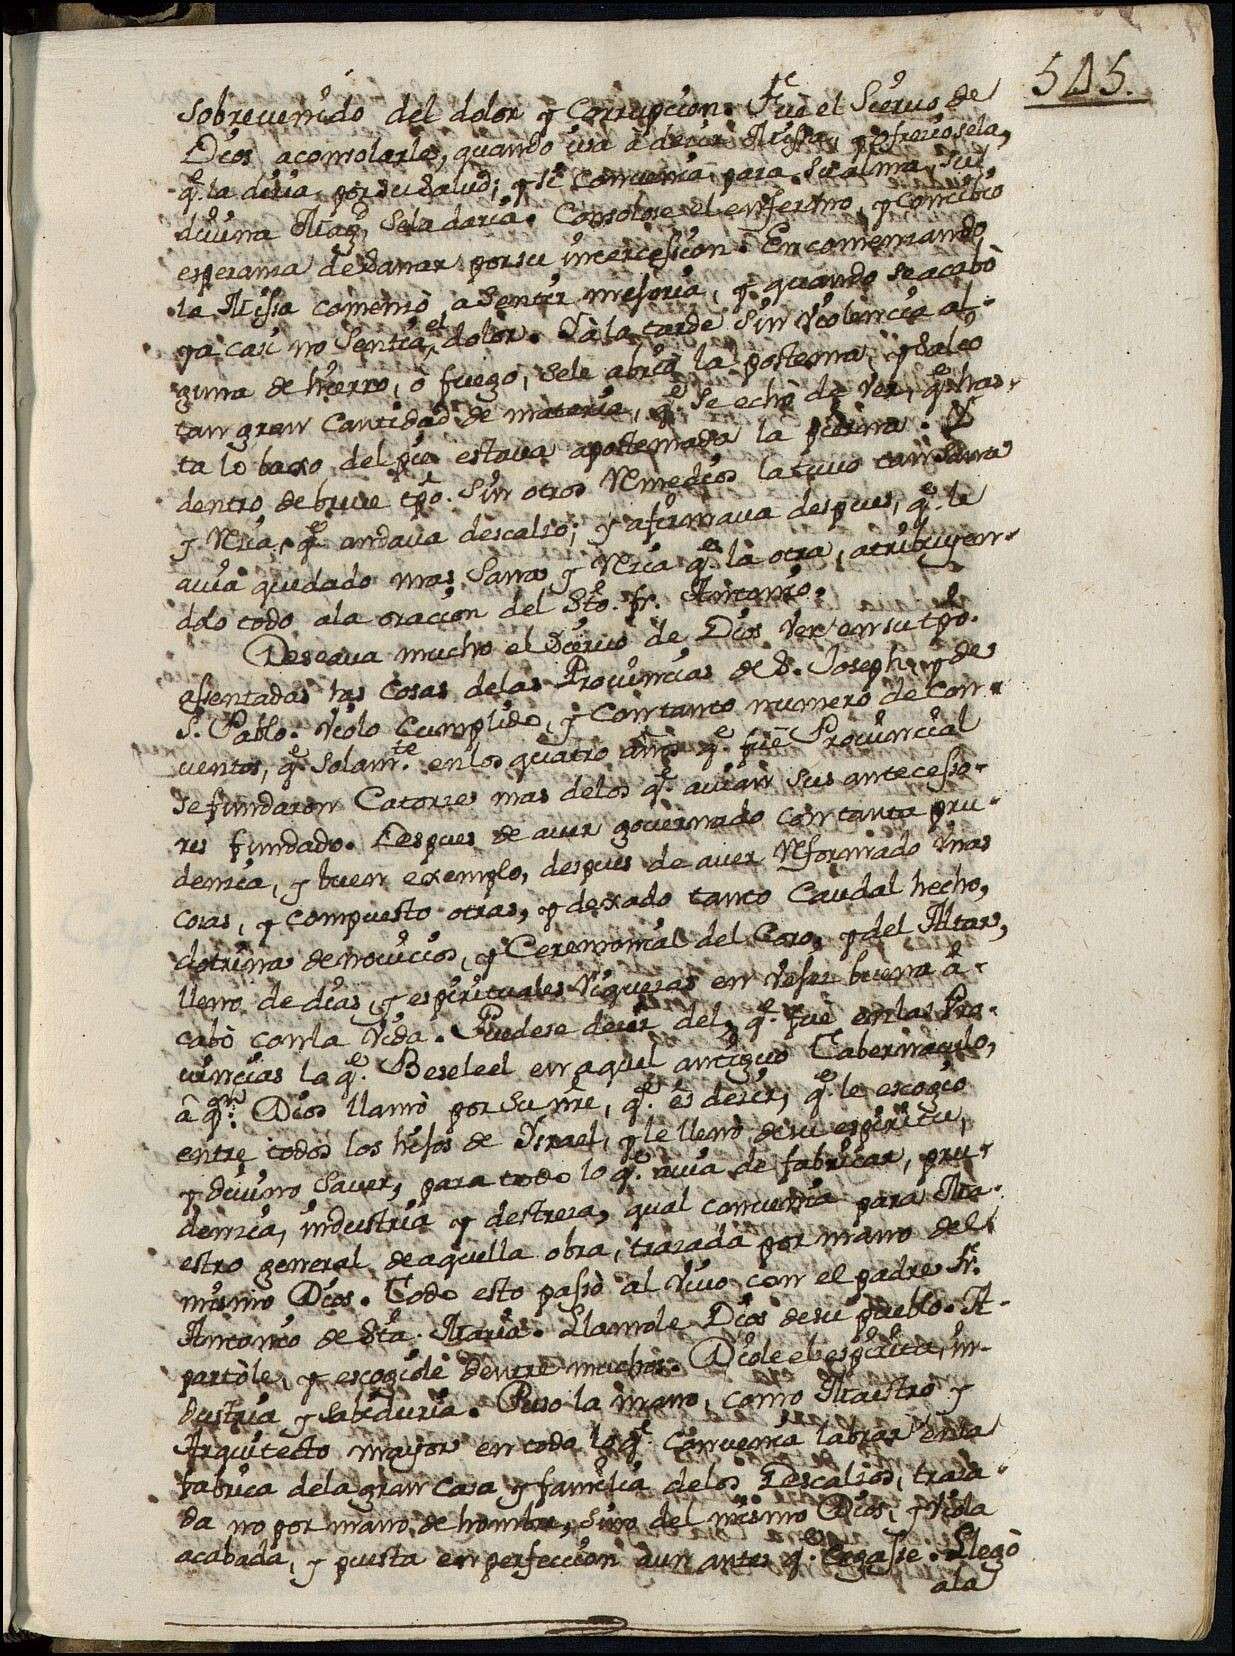 545.
sobrevenido del dolor y Corrupcion. Fuè el Siervo de
Dios aconsolarlo, quando iva à decir Missa, y ofreciosela,
q.e la diria por su salud; y si convenia para su alma, su
divina Mag.d sela daria. Consolose el enfermo, y concibio
esperanza de sanar por su intercession. En comenzando
la Missa comenzò a sentir mejoria, y quando se acabò
ya casi no sentia el dolor. Y à la tarde sin violencia al-
guna de hierro, ò fuego, sele abriò la postema, y saliò
tan gran cantidad de materia, q.e se echò de ver, q.e has-
ta lo baxo del pie estava apostemada la pierna. Y
dentro de breve tpõ. sin otros Remedios la tuvo tan sana
y Recia, q.e andava descalzo; y afirmava despues, q.e le
avia quedado mas sana, y Recia q.e la otra, atribuyen-
dolo todo ala oracion del Sto. fr. Antonio.
Deseava mucho el Siervo de Dios ver en su tpõ.
assentadas las cosas delas Provincias de S. Joseph, y de
S. Pablo. Violo cumplido, y con tanto numero de con-
ventos, q.e solam.te enlos quatro años q.e fue Provincial
se fundaron Catorze mas delos q.e avian sus antecesso-
res fundado. Despues de aver governado con tanta pru-
dencia, y buen exemplo, despues de aver Reformado unas
cosas, y compuesto otras, y dexado tanto Caudal hecho,
dotrina de novicios, y Ceremonial del Coro, y del Altar,
lleno de dias, y espirituales Riquezas en vejez buena a-
cabò conla vida. Puedese decir del, q.e fuè enlas Pro-
vincias lo q.e Beseleel en aquel antiguo Tabernaculo,
â q.n Dios llamò por su nre, q.e es decir, q.e le escogio
entre todos los hijos de Ysrael, y le llenò de su espiritu,
y divino saver, para todo lo q.e avia de fabricar, pru-
dencia, industria y destreza, qual convenia para Ma-
estro general de aquella obra, trazada por mano del
mismo Dios. Todo esto passò al vivo con el padre Fr.
Antonio de Sta. Maria. Llamole Dios de su pueblo. A-
partòle, y escogiole dentre muchos. Diole el espiritu, in-
dustria y sabiduria. Puso la mano, como Maestro y
Arquitecto mayor en todo lo q.e convenia labrar enla
fabrica dela gran casa y familia delos Descalzos, traza-
da no por mano de hombre, sino del mismo Dios, y viola
acabada, y puesta en perfeccion aun antes q.e cegasse. Llegò
ala